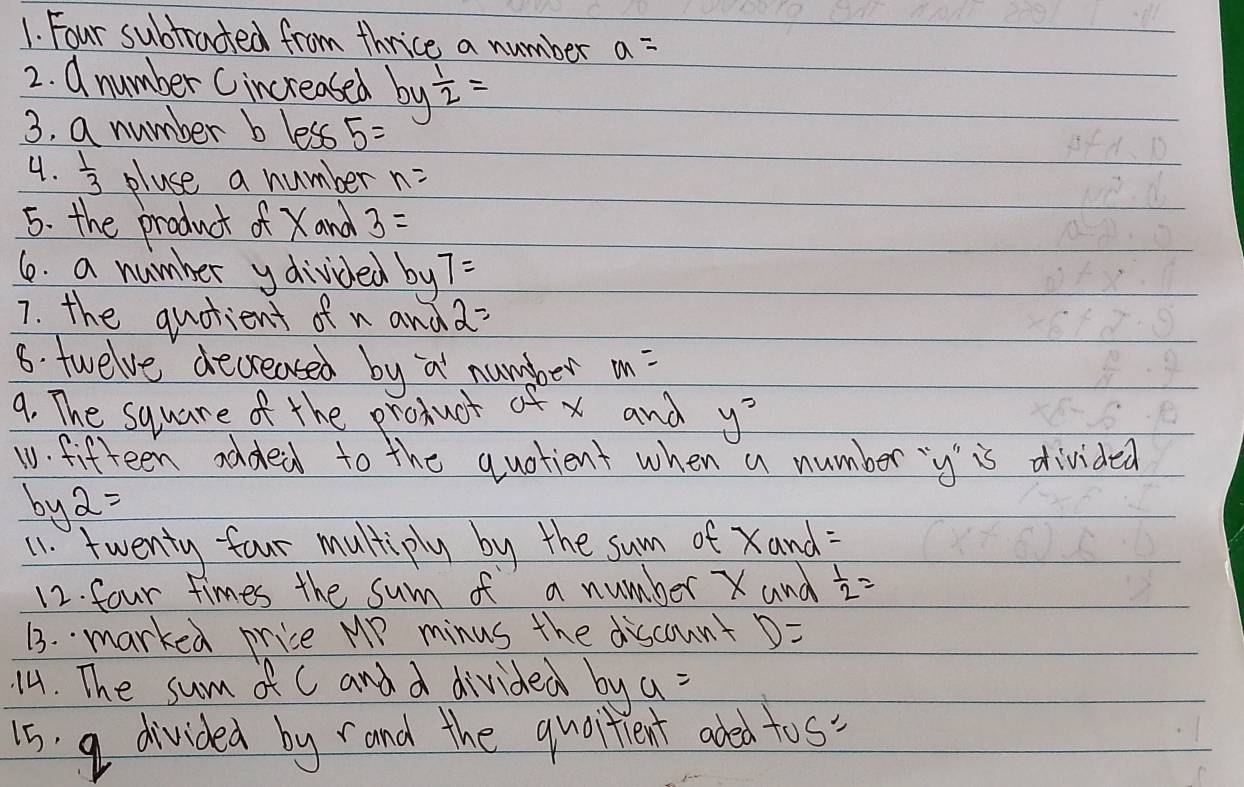 1. Four subtracted from thrice a number a =
2. a number C increased by 1/2 =
3. a number b less 5 =
4. 1/3 pluse a number n =
5. the product of X and 3 =
6. a number y divided by 7 =
7. the quotient of n and 2 =
8. twelve decreased by "a" number m =
9. The square of the product of x and y =
10. fifteen added to the quotient when a number "y" is divided
by 2 =
11. twenty four multiply by the sum of X and =
12. four times the sum of a number X and 1/2 =
13. marked price MP minus the discount D =
14. The sum of C and d divided by a =
15. q divided by r and the quoitient aded to s =